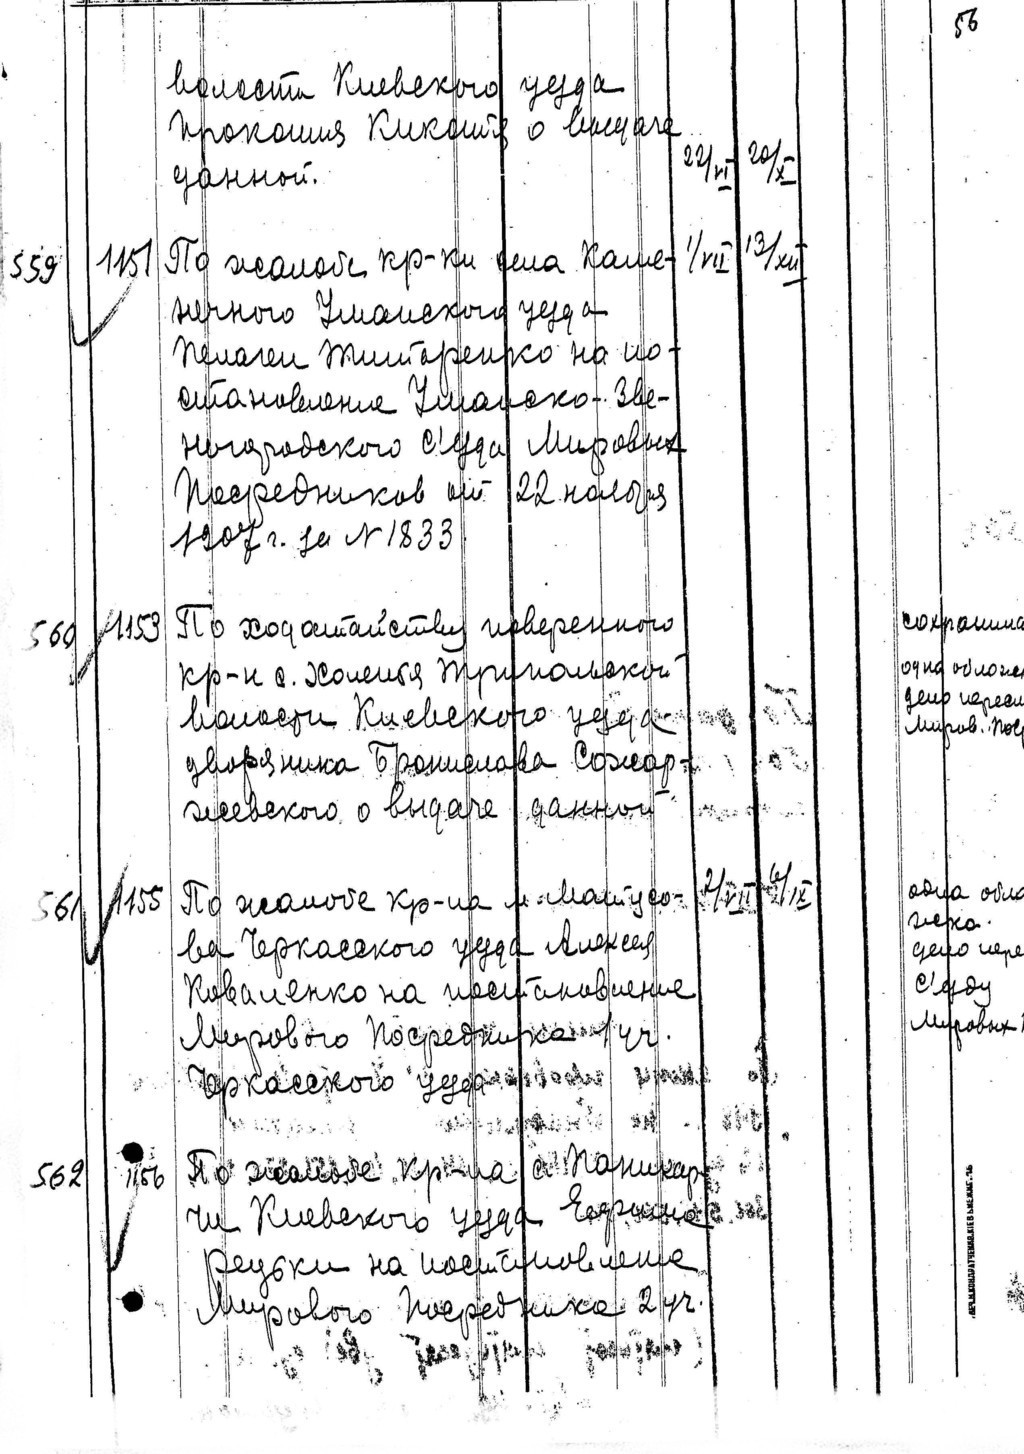 56
волости Киевского уезда
Прокопия Кикотя о выдаче
данной. 22/VI 20/X
559 1151 По жалобе кр-ки села Каме- 1/VII 13/XII
нечного Уманского уезда
Пелагеи Житаренко на по-
становление Уманско-Зве-
ногородского С'езда Мировых
Посредников от 22 ноября
1907 г. за N 1833
560 1153 По ходатайству поверенного
кр-н с. Халепья Трипольской
волости Киевского уезда
дворянина Бронислава Сожар-
жевского о выдаче данной
сохранила
одна облож
дело пересл
Миров. Пос
561 1155 По жалобе кр-на м. Матусо- 2/VII 6/IX
ва Черкасского уезда Алексея
Коваленко на постановление
Мирового Посредника 1 уч.
Черкасского уезда
одна обло
жка.
дело пере
С'езду
Мировых П
562 1156 По жалобе кр-на с. Паникар-
чи Киевского уезда Ефрима
Редьки на постановление
Мирового Посредника 2 уч.